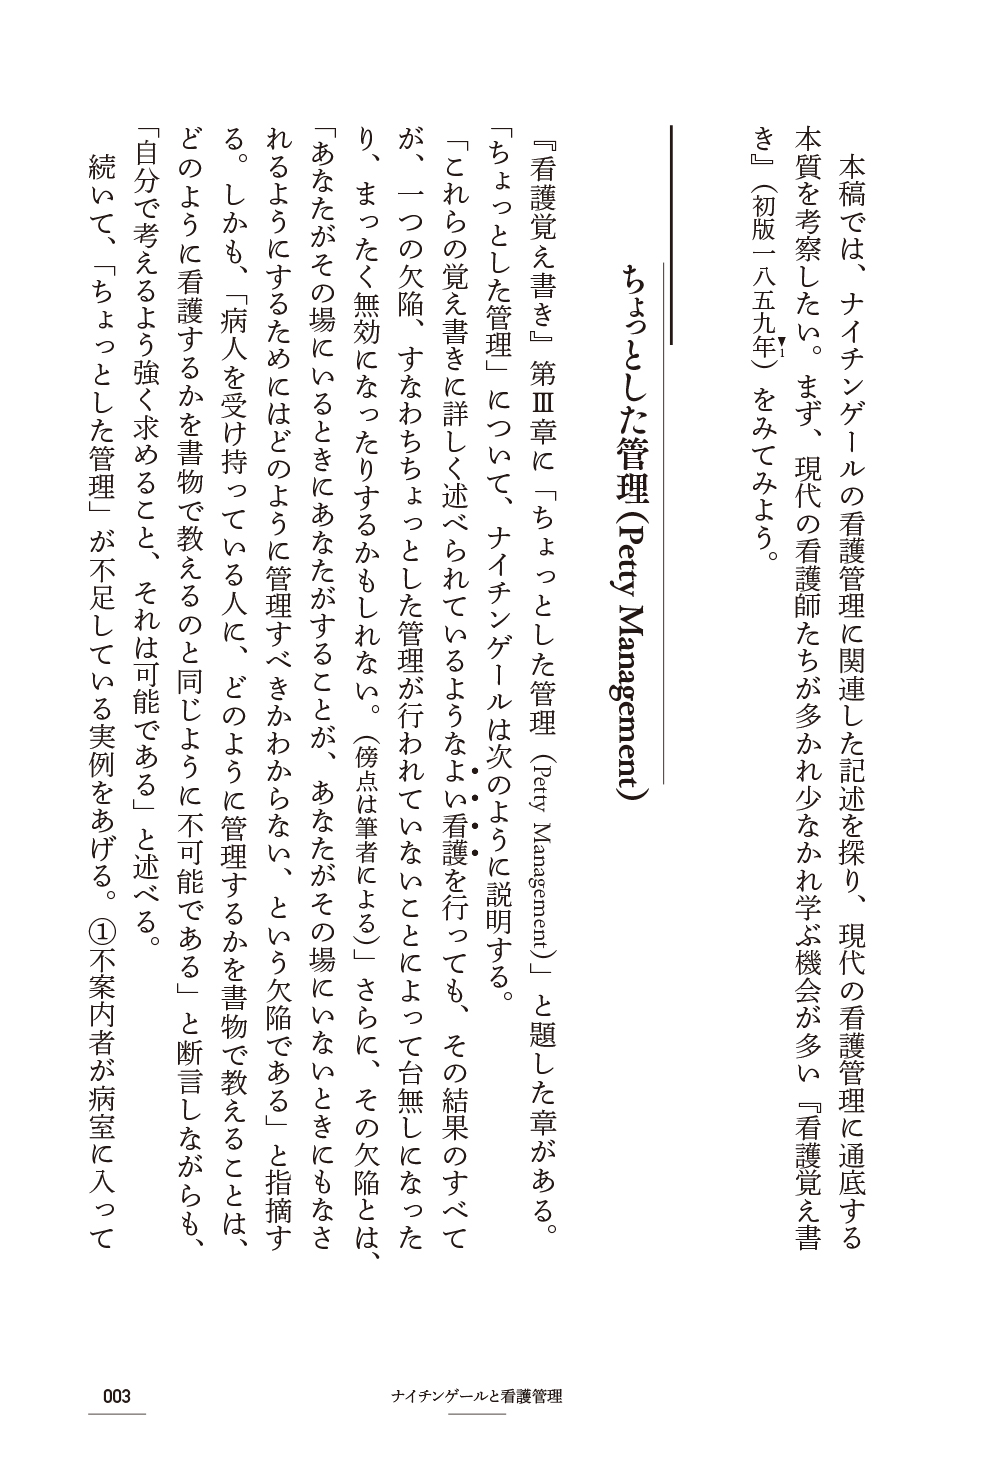 本稿では、ナイチンゲールの看護管理に関連した記述を探り、現代の看護管理に通底する
本質を考察したい。まず、現代の看護師たちが多かれ少なかれ学ぶ機会が多い『看護覚え書
き』（初版一八五九年▼1）をみてみよう。
ちょっとした管理（Petty Management）
『看護覚え書き』第Ⅲ章に「ちょっとした管理（Petty Management）」と題した章がある。
「ちょっとした管理」について、ナイチンゲールは次のように説明する。
「これらの覚え書きに詳しく述べられているようなよい看護を行っても、その結果のすべて
が、一つの欠陥、すなわちちょっとした管理が行われていないことによって台無しになった
り、まったく無効になったりするかもしれない。（傍点は筆者による）」さらに、その欠陥とは、
「あなたがその場にいるときにあなたがすることが、あなたがその場にいないときにもなさ
れるようにするためにはどのように管理すべきかわからない、という欠陥である」と指摘す
る。しかも、「病人を受け持っている人に、どのように管理するかを書物で教えることは、
どのように看護するかを書物で教えるのと同じように不可能である」と断言しながらも、
「自分で考えるよう強く求めること、それは可能である」と述べる。
続いて、「ちょっとした管理」が不足している実例をあげる。①不案内者が病室に入って
ナイチンゲールと看護管理
003